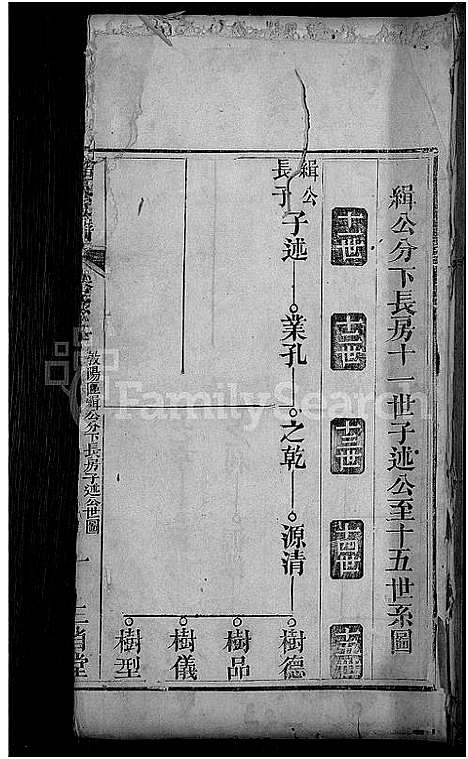 緝公分下長房十一世子述公至十五世系圖
十一世
十二世
十三世
十四世
十五世
緝公
長子
子述
業孔
之乾
源清
樹德
樹品
樹儀
樹型
緝公分下長房子述公世圖
一
三省堂
FamilySearch